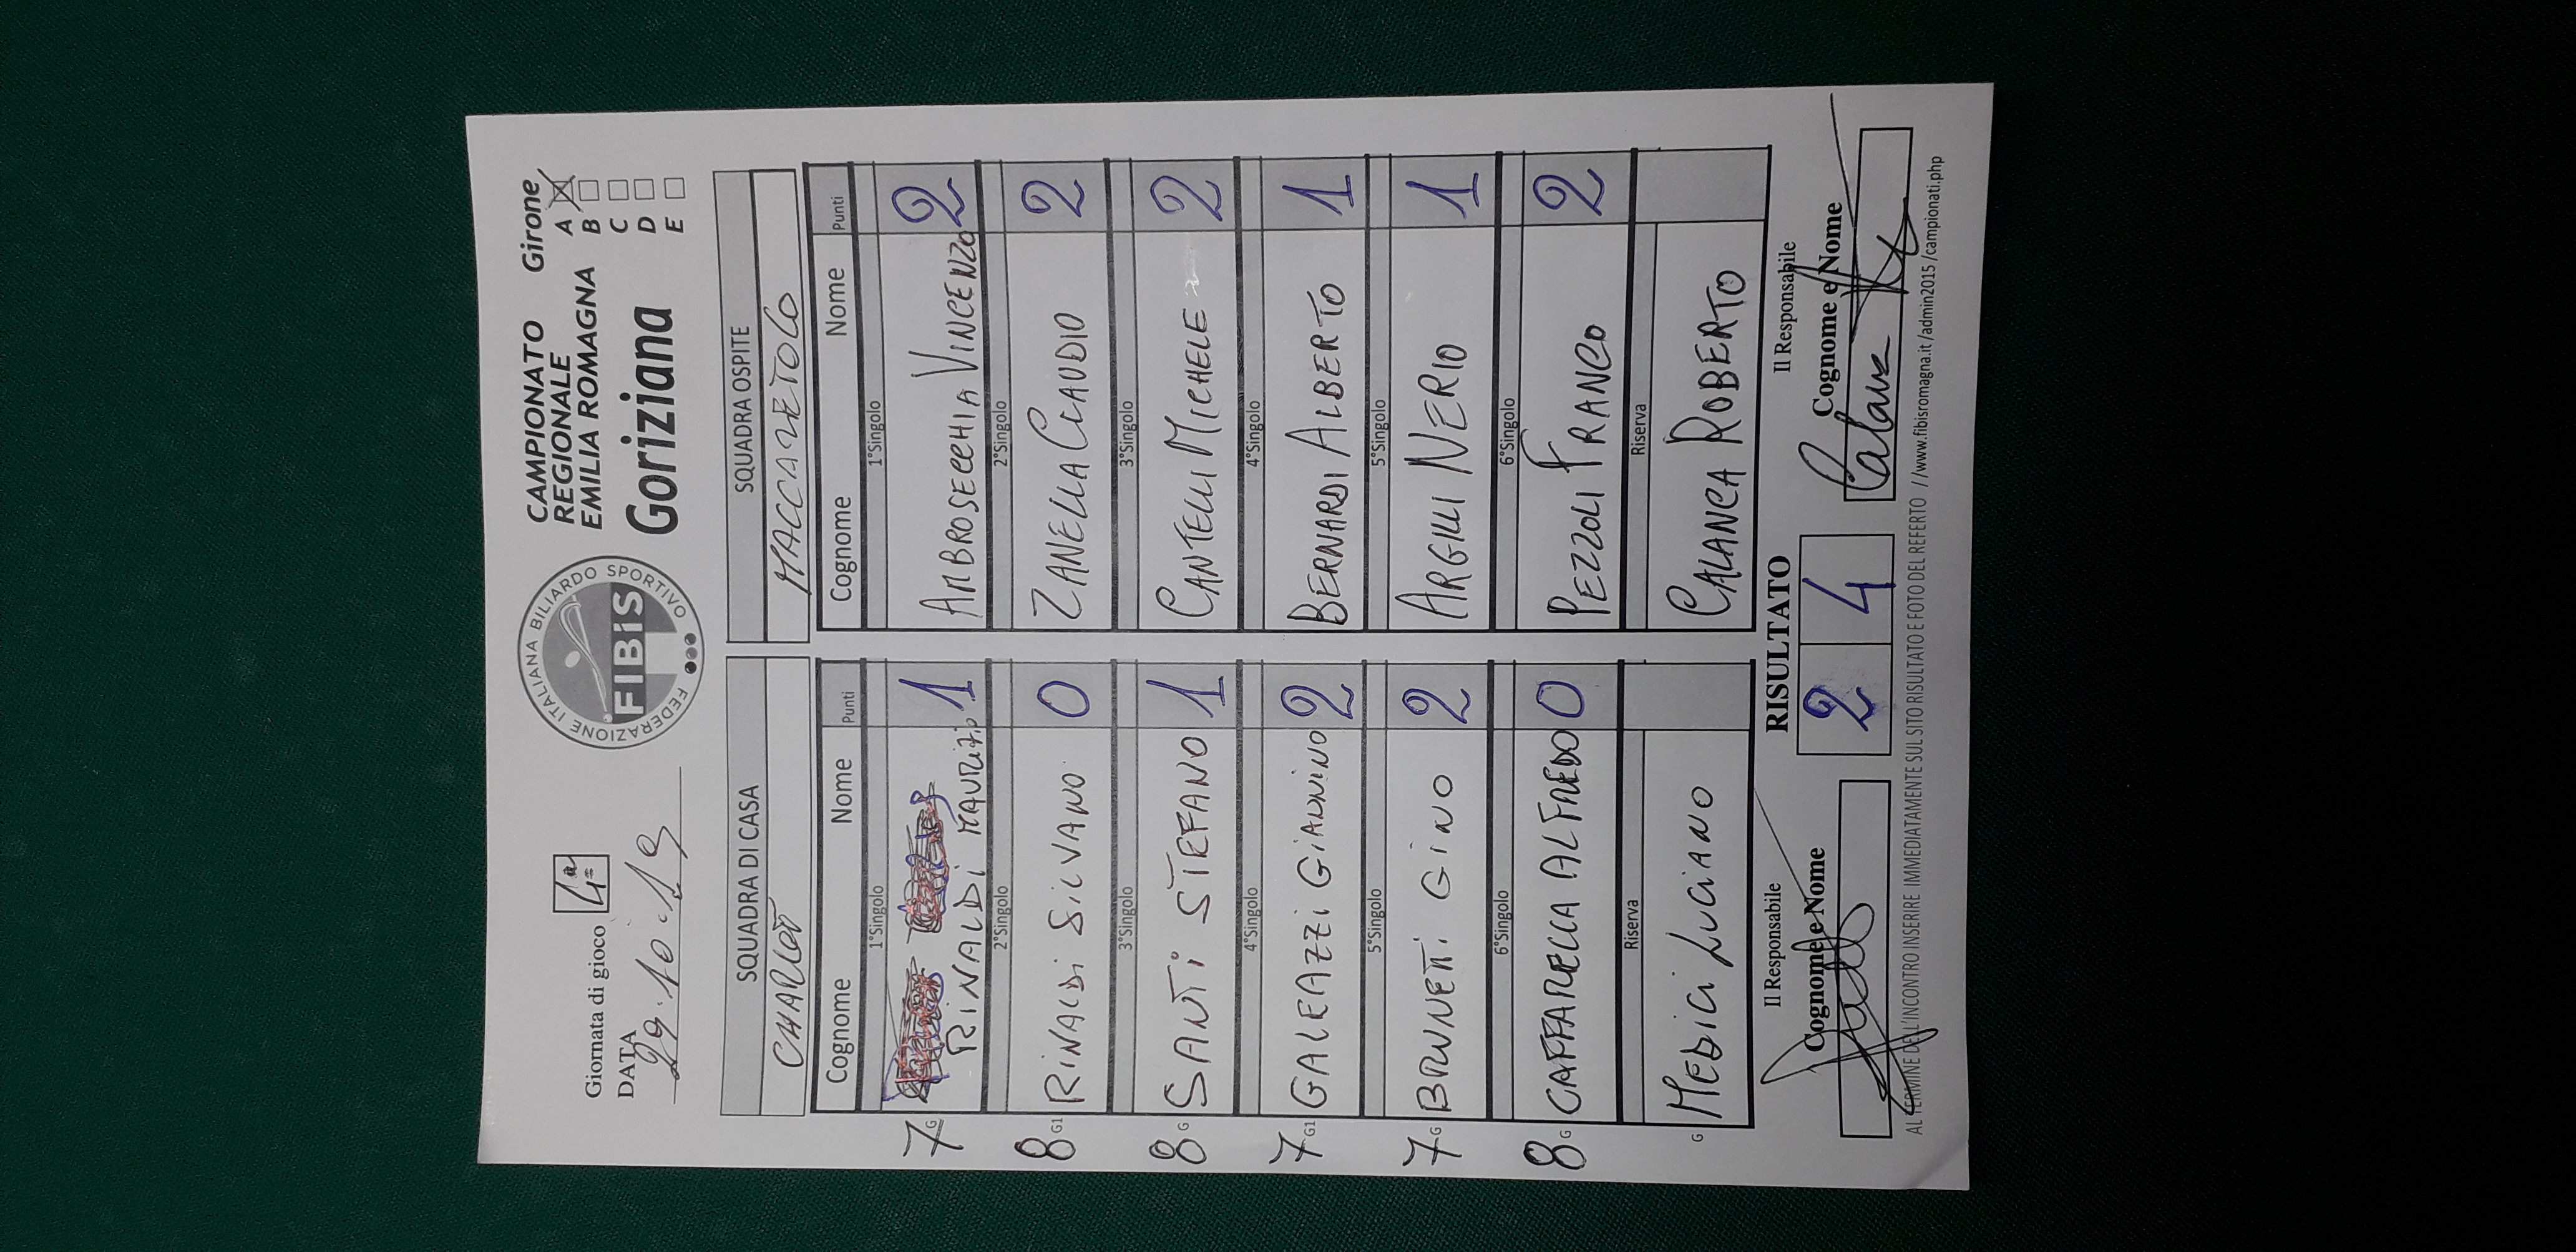 Giornata di gioco 4ª
DATA 29.10.19
FEDERAZIONE ITALIANA BILIARDO SPORTIVO
FIBiS
CAMPIONATO
REGIONALE
EMILIA ROMAGNA
Goriziana
Girone
A X
B
C
D
E
SQUADRA DI CASA SQUADRA OSPITE
CHARLOT MACCARETOLO
Cognome Nome Punti Cognome Nome Punti
1°Singolo 1°Singolo
7 G RINALDI MAURIZIO 1 AMBROSECCHIA VINCENZO 2
2°Singolo 2°Singolo
8 G1 RINALDI SILVANO 0 ZANELLA CLAUDIO 2
3°Singolo 3°Singolo
8 G SANTI STEFANO 1 CANTELLI MICHELE 2
4°Singolo 4°Singolo
7 G1 GALEAZZI GIANNINO 2 BERNARDI ALBERTO 1
5°Singolo 5°Singolo
7 G BRUNETTI GINO 2 ARGILLI NERIO 1
6°Singolo 6°Singolo
8 G CAFFARELLA ALFREDO 0 PEZZOLI FRANCO 2
Riserva Riserva
G MEDICI LUCIANO CALANCA ROBERTO
Il Responsabile RISULTATO Il Responsabile
Cognome e Nome 2 4 Cognome e Nome
AL TERMINE DELL'INCONTRO INSERIRE IMMEDIATAMENTE SUL SITO RISULTATO E FOTO DEL REFERTO //www.fibisromagna.it/admin2015/campionati.php